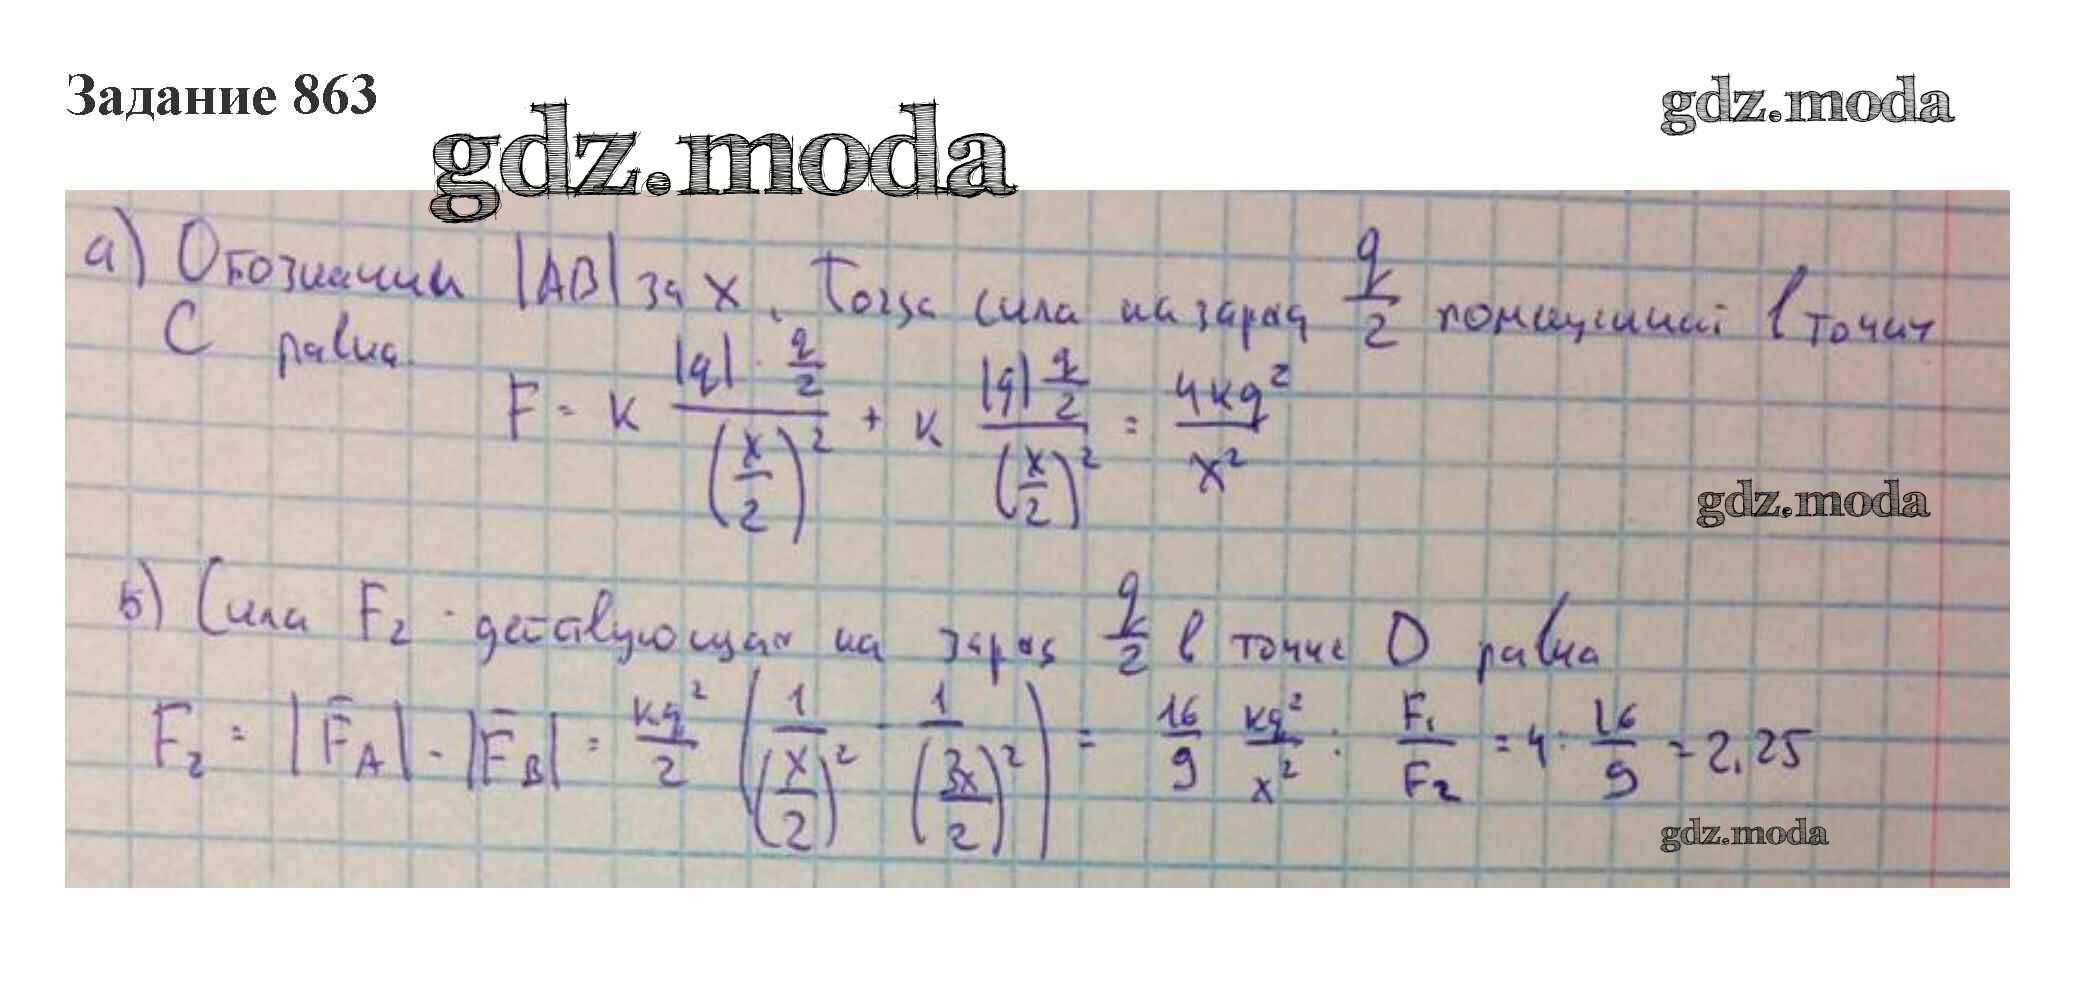 Задание 863
gdz.moda
gdz.moda
а) Обозначим |AB| за x. Тогда сила на заряд q/2 помещенный в точку
C равна.
F = k |q| · q/2 / (x/2)² + k |q| q/2 / (x/2)² = 4kq² / x²
gdz.moda
б) Сила F₂ - действующая на заряд q/2 в точке D равна
F₂ = |F̄_A| - |F̄_B| = kq²/2 (1/(x/2)² - 1/(3x/2)²) = 16/9 kq²/x² ; F₁/F₂ = 4 : 16/9 = 2,25
gdz.moda